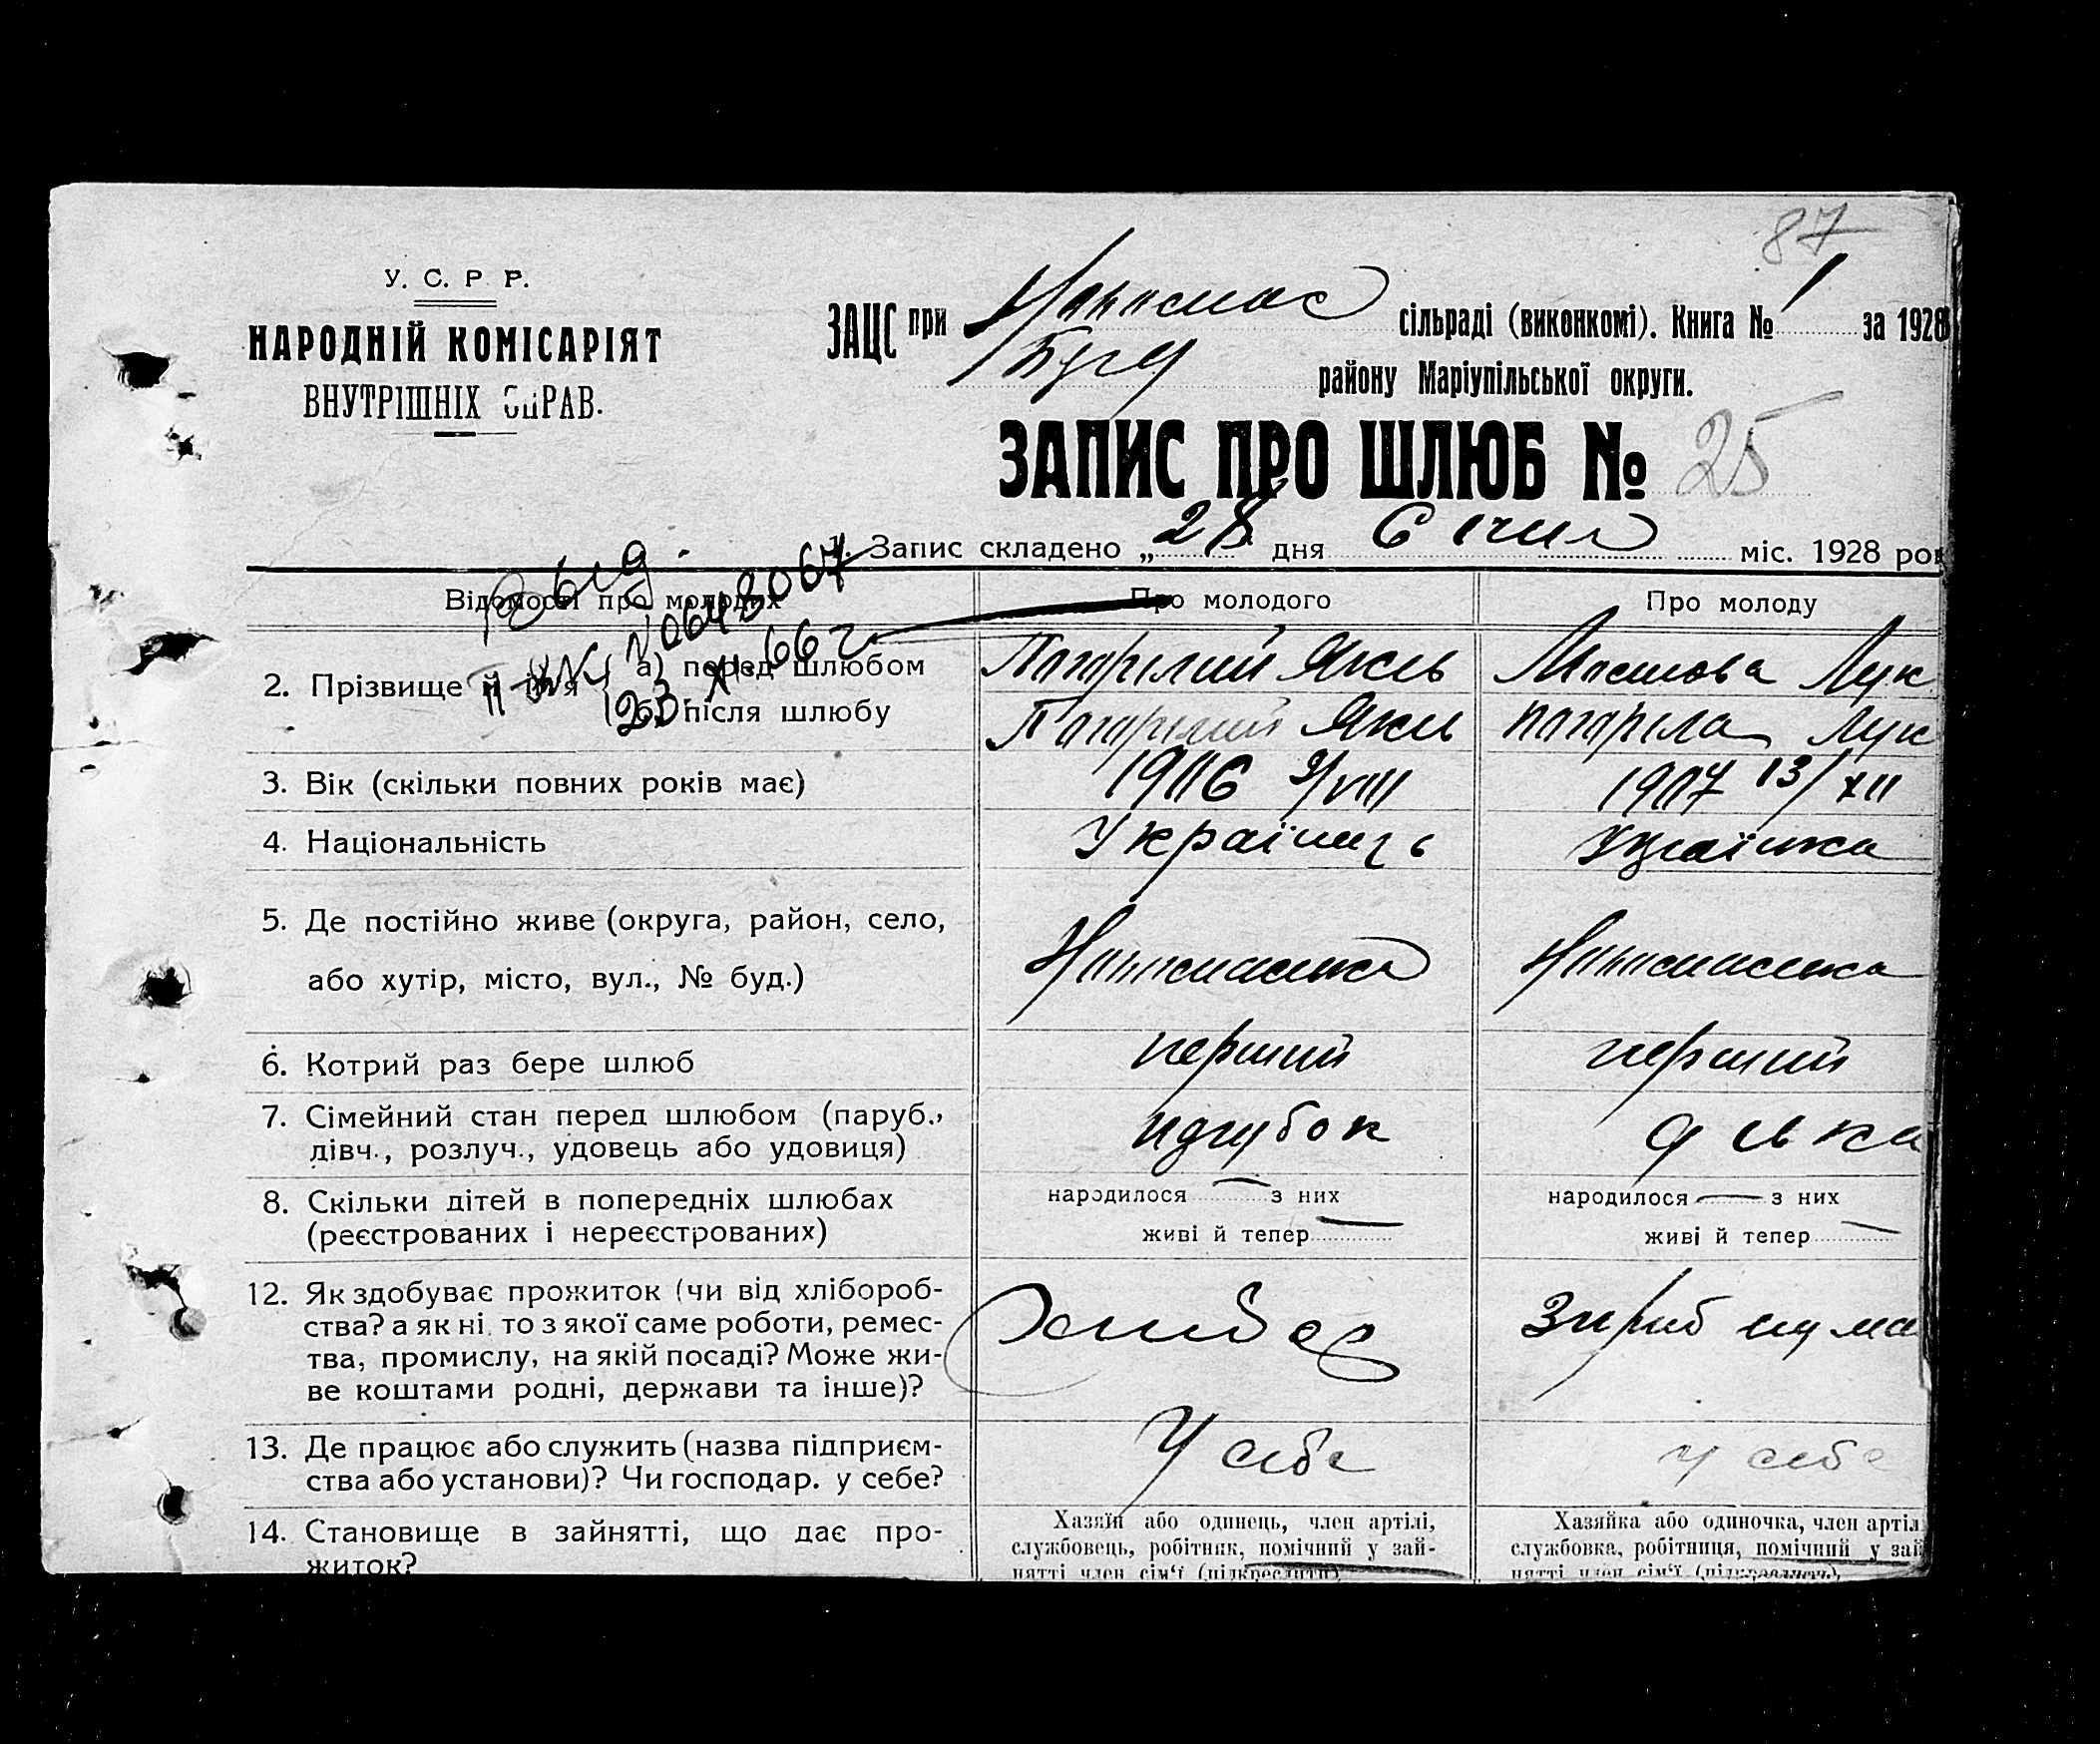 87
У. С. Р. Р.
НАРОДНІЙ КОМІСАРІЯТ
ВНУТРІШНІХ СПРАВ.
ЗАЦС при сільраді (виконкомі). Книга № 1 за 1928
району Маріупільської округи.
ЗАПИС ПРО ШЛЮБ № 25
1. Запис складено „28 дня Січня міс. 1928 рок
Выд.
Відомості про молодих
Про молодого
Про молоду
№ 0648067
23. XI 66 г.
2. Прізвище й ім'я { а) перед шлюбом
Яків
Лук
б) після шлюбу
Яків
Лук
3. Вік (скільки повних років має)
1906 9/VIII
1907 13/XII
4. Національність
Українець
Українка
5. Де постійно живе (округа, район, село,
або хутір, місто, вул., № буд.)
6. Котрий раз бере шлюб
перший
перший
7. Сімейний стан перед шлюбом (паруб.,
дівч., розлуч., удовець або удовиця)
парубок
8. Скільки дітей в попередніх шлюбах
(реєстрованих і нереєстрованих)
народилося — з них
живі й тепер —
народилося — з них
живі й тепер —
12. Як здобуває прожиток (чи від хлібороб-
ства? а як ні, то з якої саме роботи, ремес-
тва, промислу, на якій посаді? Може жи-
ве коштами родні, держави та інше)?
13. Де працює або служить (назва підприєм-
ства або установи)? Чи господар. у себе?
У себе
у себе
14. Становище в зайнятті, що дає про-
житок?
Хазяїн або одинець, член артілі,
службовець, робітник, помічний у зай-
нятті член сім'ї (підкреслити)
Хазяйка або одиночка, член артіл
службовка, робітниця, помічний у зай
нятті член сім'ї (підкреслить),